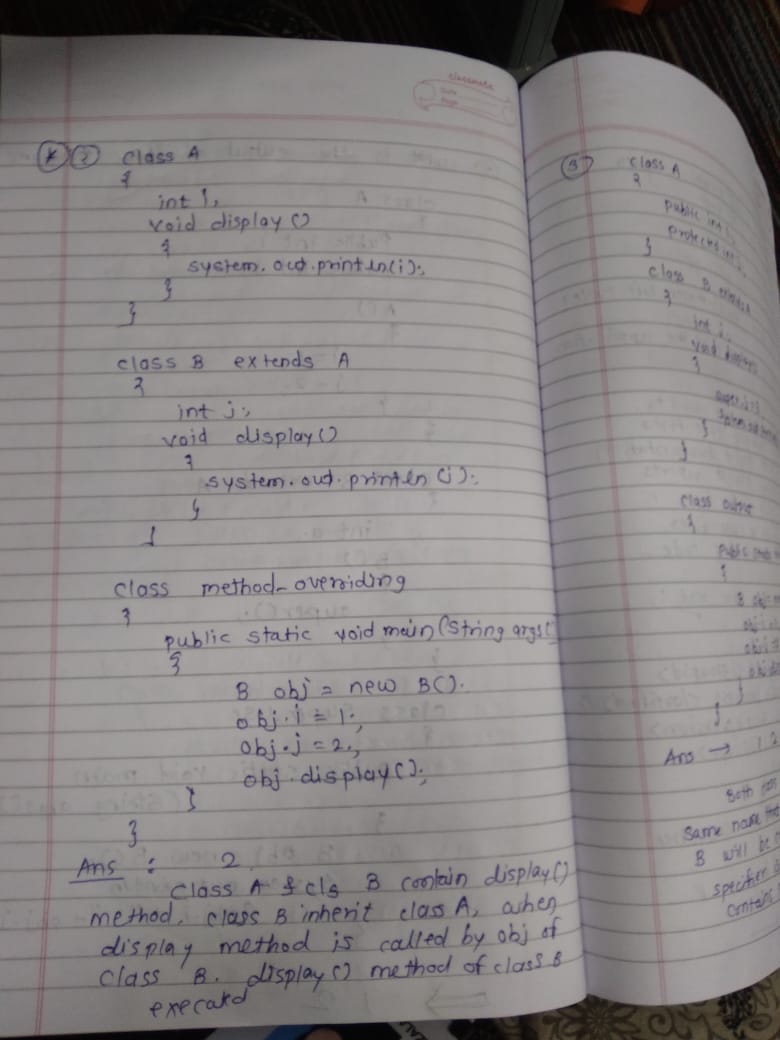 classmate
Date
Page
* 2 class A
{
int i,
void display ()
{
system.out.println(i);
}
}
class B extends A
{
int j;
void display()
{
system.out.println (j);
}
}
class method-overriding
{
public static void main(String args[
{
B obj = new B().
obj.i = 1;
obj.j = 2;
obj.display();
}
}
Ans : 2
Class A & cls B contain display()
method. class B inherit class A, when
display method is called by obj of
class B. display() method of class B
execatd
3 class A
{
public int
protected int
}
class B
{
int j,
void display
{
}
}
class output
{
public
{
B obj
}
}
Ans → 1 2
Both
Same name
B will be
specifier
contain